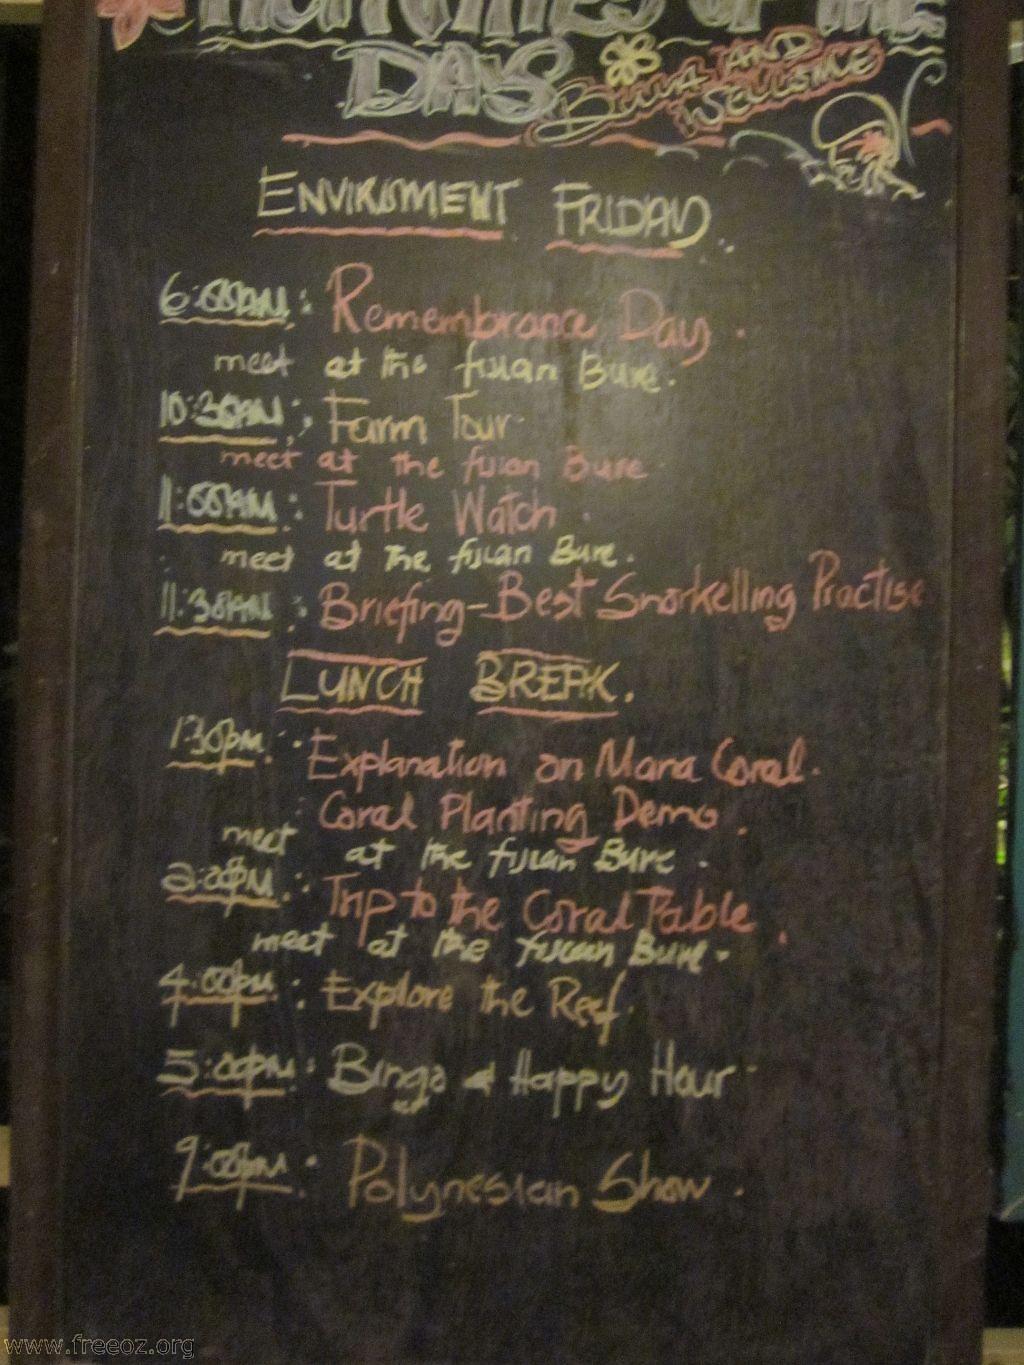 ACTIVITIES OF THE
DAY
BULA AND
WELCOME
ENVIROMENT FRIDAY
6:00AM: Remembrance Day.
meet at the fijian Bure.
10:30AM: Farm Tour
meet at the fijian Bure
11:00AM: Turtle Watch
meet at the fijian Bure.
11:30AM: Briefing-Best Snorkelling Practise
LUNCH BREAK.
1:30pm: Explanation on Mana Coral.
Coral Planting Demo.
meet at the fijian Bure.
2:00pm: Trip to the Coral Table.
meet at the fijian Bure.
4:00pm: Explore the Reef.
5:00pm: Bingo & Happy Hour
9:00pm: Polynesian Show.
www.freeoz.org